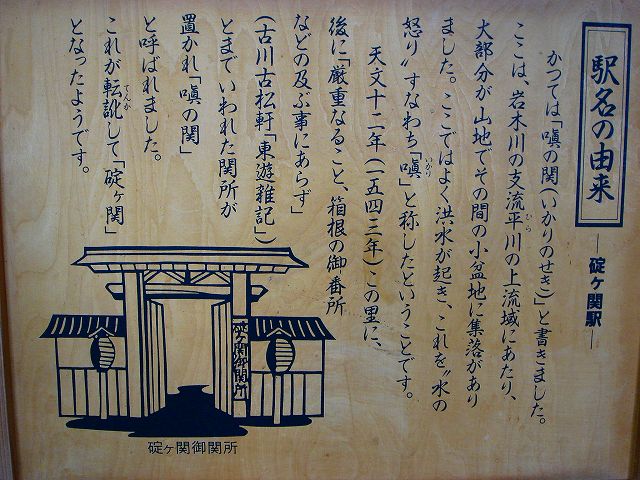 駅名の由来
―碇ヶ関駅―
かつては「嗔の関(いかりのせき)」と書きました。
ここは、岩木川の支流平川の上流域にあたり、
ひら
大部分が山地でその間の小盆地に集落があり
ました。ここではよく洪水が起き、これを〝水の
怒り〟すなわち「嗔」と称したということです。
いかり
天文十二年(一五四三年)この里に、
後に「厳重なること、箱根の御番所
などの及ぶ事にあらず」
(古川古松軒「東遊雑記」)
とまでいわれた関所が
置かれ「嗔の関」
と呼ばれました。
これが転訛して「碇ヶ関」
てんか
となったようです。
碇ヶ関御関所
碇ヶ関御関所